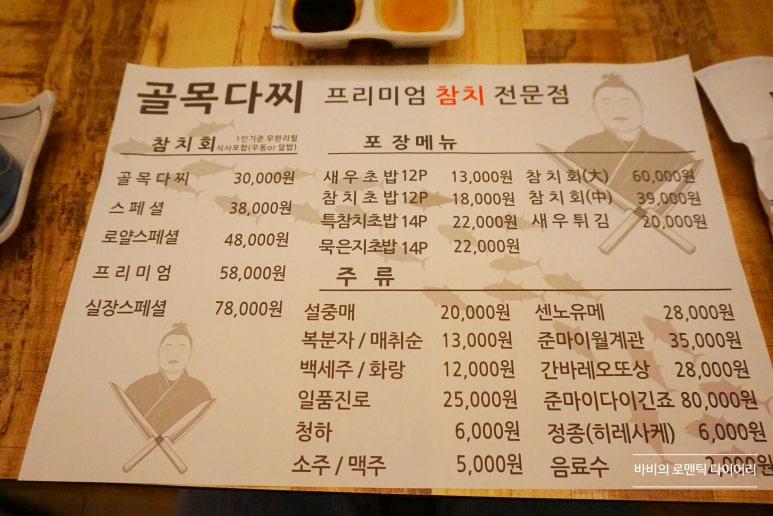 골목다찌 프리미엄 참치 전문점
참치회 1인기준 무한리필
식사포함(우동or 알밥)
골목다찌 30,000원
스페셜 38,000원
로얄스페셜 48,000원
프리미엄 58,000원
실장스페셜 78,000원
포장메뉴
새우초밥 12P 13,000원 참치회(大) 60,000원
참치초밥 12P 18,000원 참치회(中) 39,000원
특참치초밥 14P 22,000원 새우튀김 20,000원
묵은지초밥 14P 22,000원
주 류
설중매 20,000원 센노유메 28,000원
복분자 / 매취순 13,000원 준마이월계관 35,000원
백세주 / 화랑 12,000원 간바레오또상 28,000원
일품진로 25,000원 준마이다이긴죠 80,000원
청하 6,000원 정종(히레사케) 6,000원
소주 / 맥주 5,000원 음료수 2,000원
바비의 로맨틱 다이어리